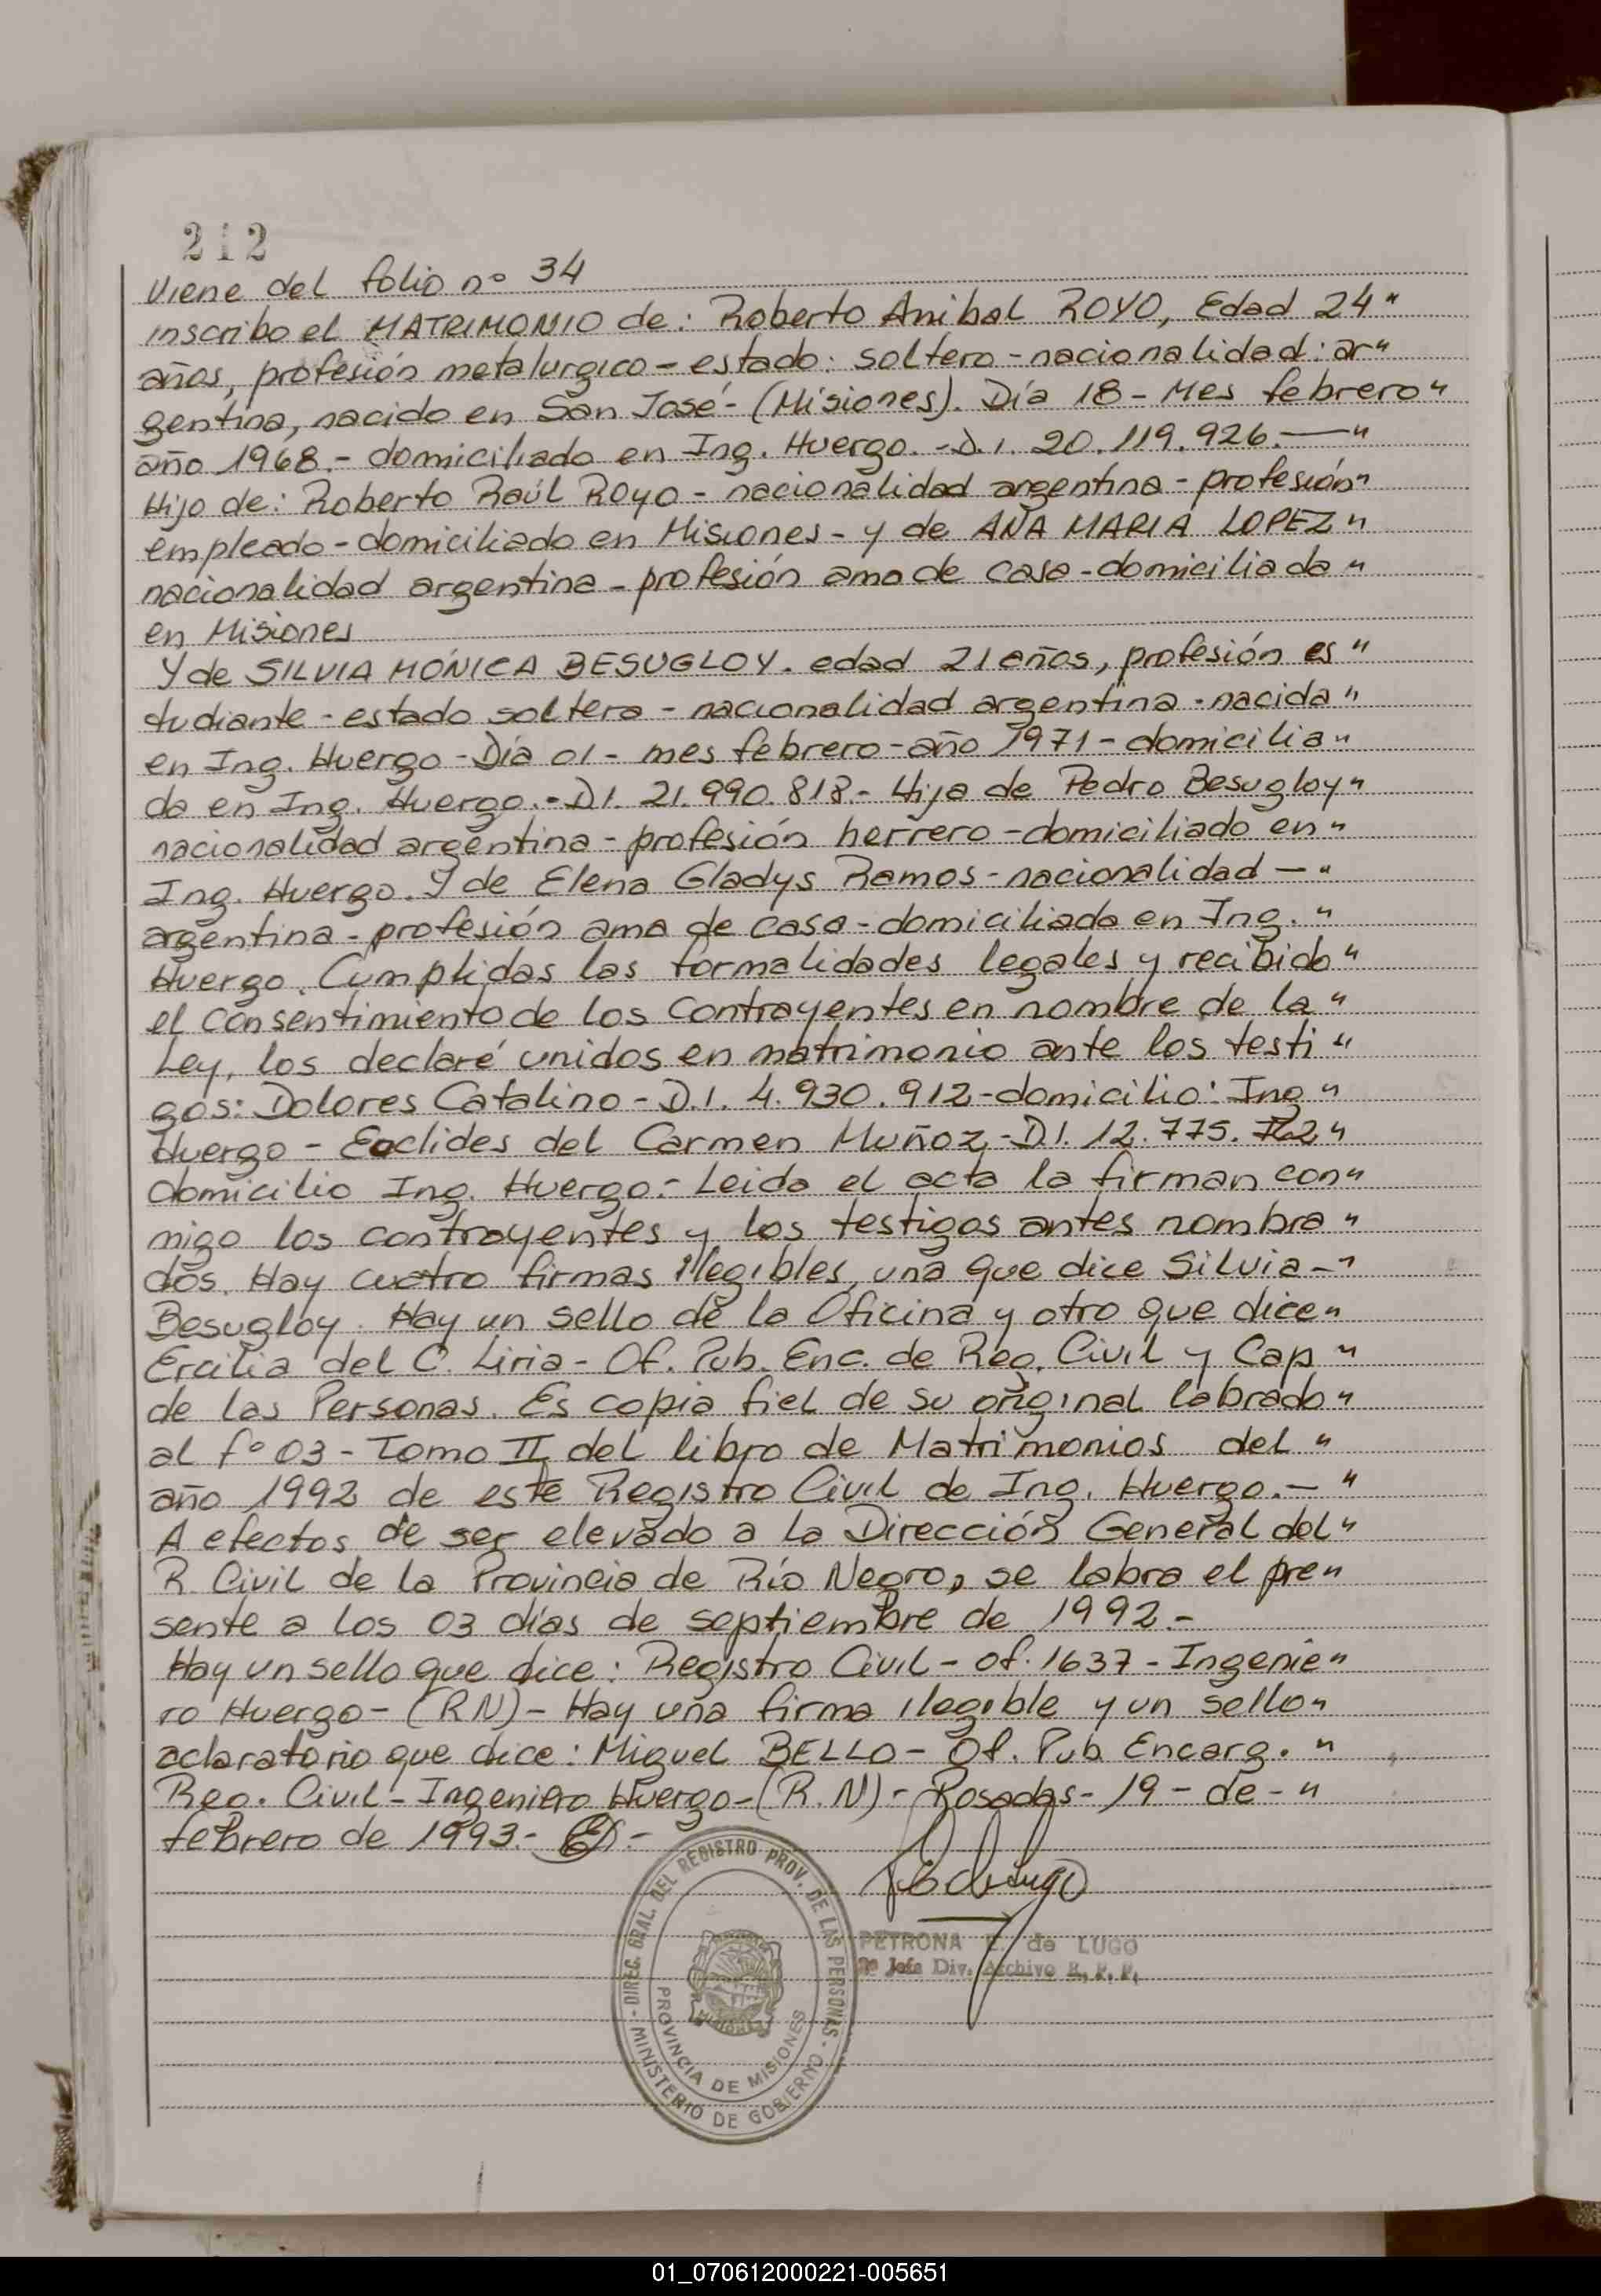 212
Viene del folio nº 34
inscribo el MATRIMONIO de: Roberto Anibal ROYO, Edad 24 "
años, profesión metalurgico - estado: soltero - nacionalidad: ar "
gentina, nacido en San José - (Misiones). Día 18 - Mes febrero "
año 1968.- domiciliado en Ing. Huergo. - D.I. 20.119.926. — "
Hijo de: Roberto Raúl Royo - nacionalidad argentina - profesión "
empleado - domiciliado en Misiones - y de ANA MARIA LOPEZ "
nacionalidad argentina - profesión ama de casa - domiciliada "
en Misiones
Y de SILVIA MÓNICA BESUGLOY. edad 21 años, profesión es "
tudiante - estado soltera - nacionalidad argentina - nacida "
en Ing. Huergo - Día 01 - mes febrero - año 1971 - domicilia "
da en Ing. Huergo. - D.I. 21.990.818.- Hija de Pedro Besugloy "
nacionalidad argentina - profesión herrero - domiciliado en "
Ing. Huergo. Y de Elena Gladys Ramos - nacionalidad — "
argentina - profesión ama de casa - domiciliada en Ing. "
Huergo. Cumplidas las formalidades legales y recibido "
el consentimiento de los contrayentes en nombre de la "
Ley, los declaré unidos en matrimonio ante los testi "
gos: Dolores Catalino - D.I. 4.930.912 - domicilio: Ing "
Huergo - Euclides del Carmen Muñoz - D.I. 12.775.
domicilio Ing. Huergo.- Leida el acta la firman con "
migo los contrayentes y los testigos antes nombra "
dos. Hay cuatro firmas ilegibles, una que dice Silvia - "
Besugloy. Hay un sello de la Oficina y otro que dice "
Ercilia del C. Liria - Of. Pub. Enc. de Reg. Civil y Cap "
de las Personas. Es copia fiel de su original labrado "
al fº 03 - Tomo II del libro de Matrimonios del "
año 1992 de este Registro Civil de Ing. Huergo. - "
A efectos de ser elevado a la Dirección General del "
R. Civil de la Provincia de Río Negro, se labra el pre "
sente a los 03 días de septiembre de 1992.-
Hay un sello que dice: Registro Civil - of. 1637 - Ingenie "
ro Huergo - (RN) - Hay una firma ilegible y un sello "
aclaratorio que dice: Miguel BELLO - Of. Pub. Encarg. "
Reg. Civil - Ingeniero Huergo - (R.N) - Posadas - 19 - de - "
febrero de 1993.-
DIREC. GRAL. DEL REGISTRO PROV. DE LAS PERSONAS - MINISTERIO DE GOBIERNO -
PROVINCIA DE MISIONES
PETRONA E. de LUGO
2º Jefa Div. Archivo R. P. P.
01_070612000221-005651